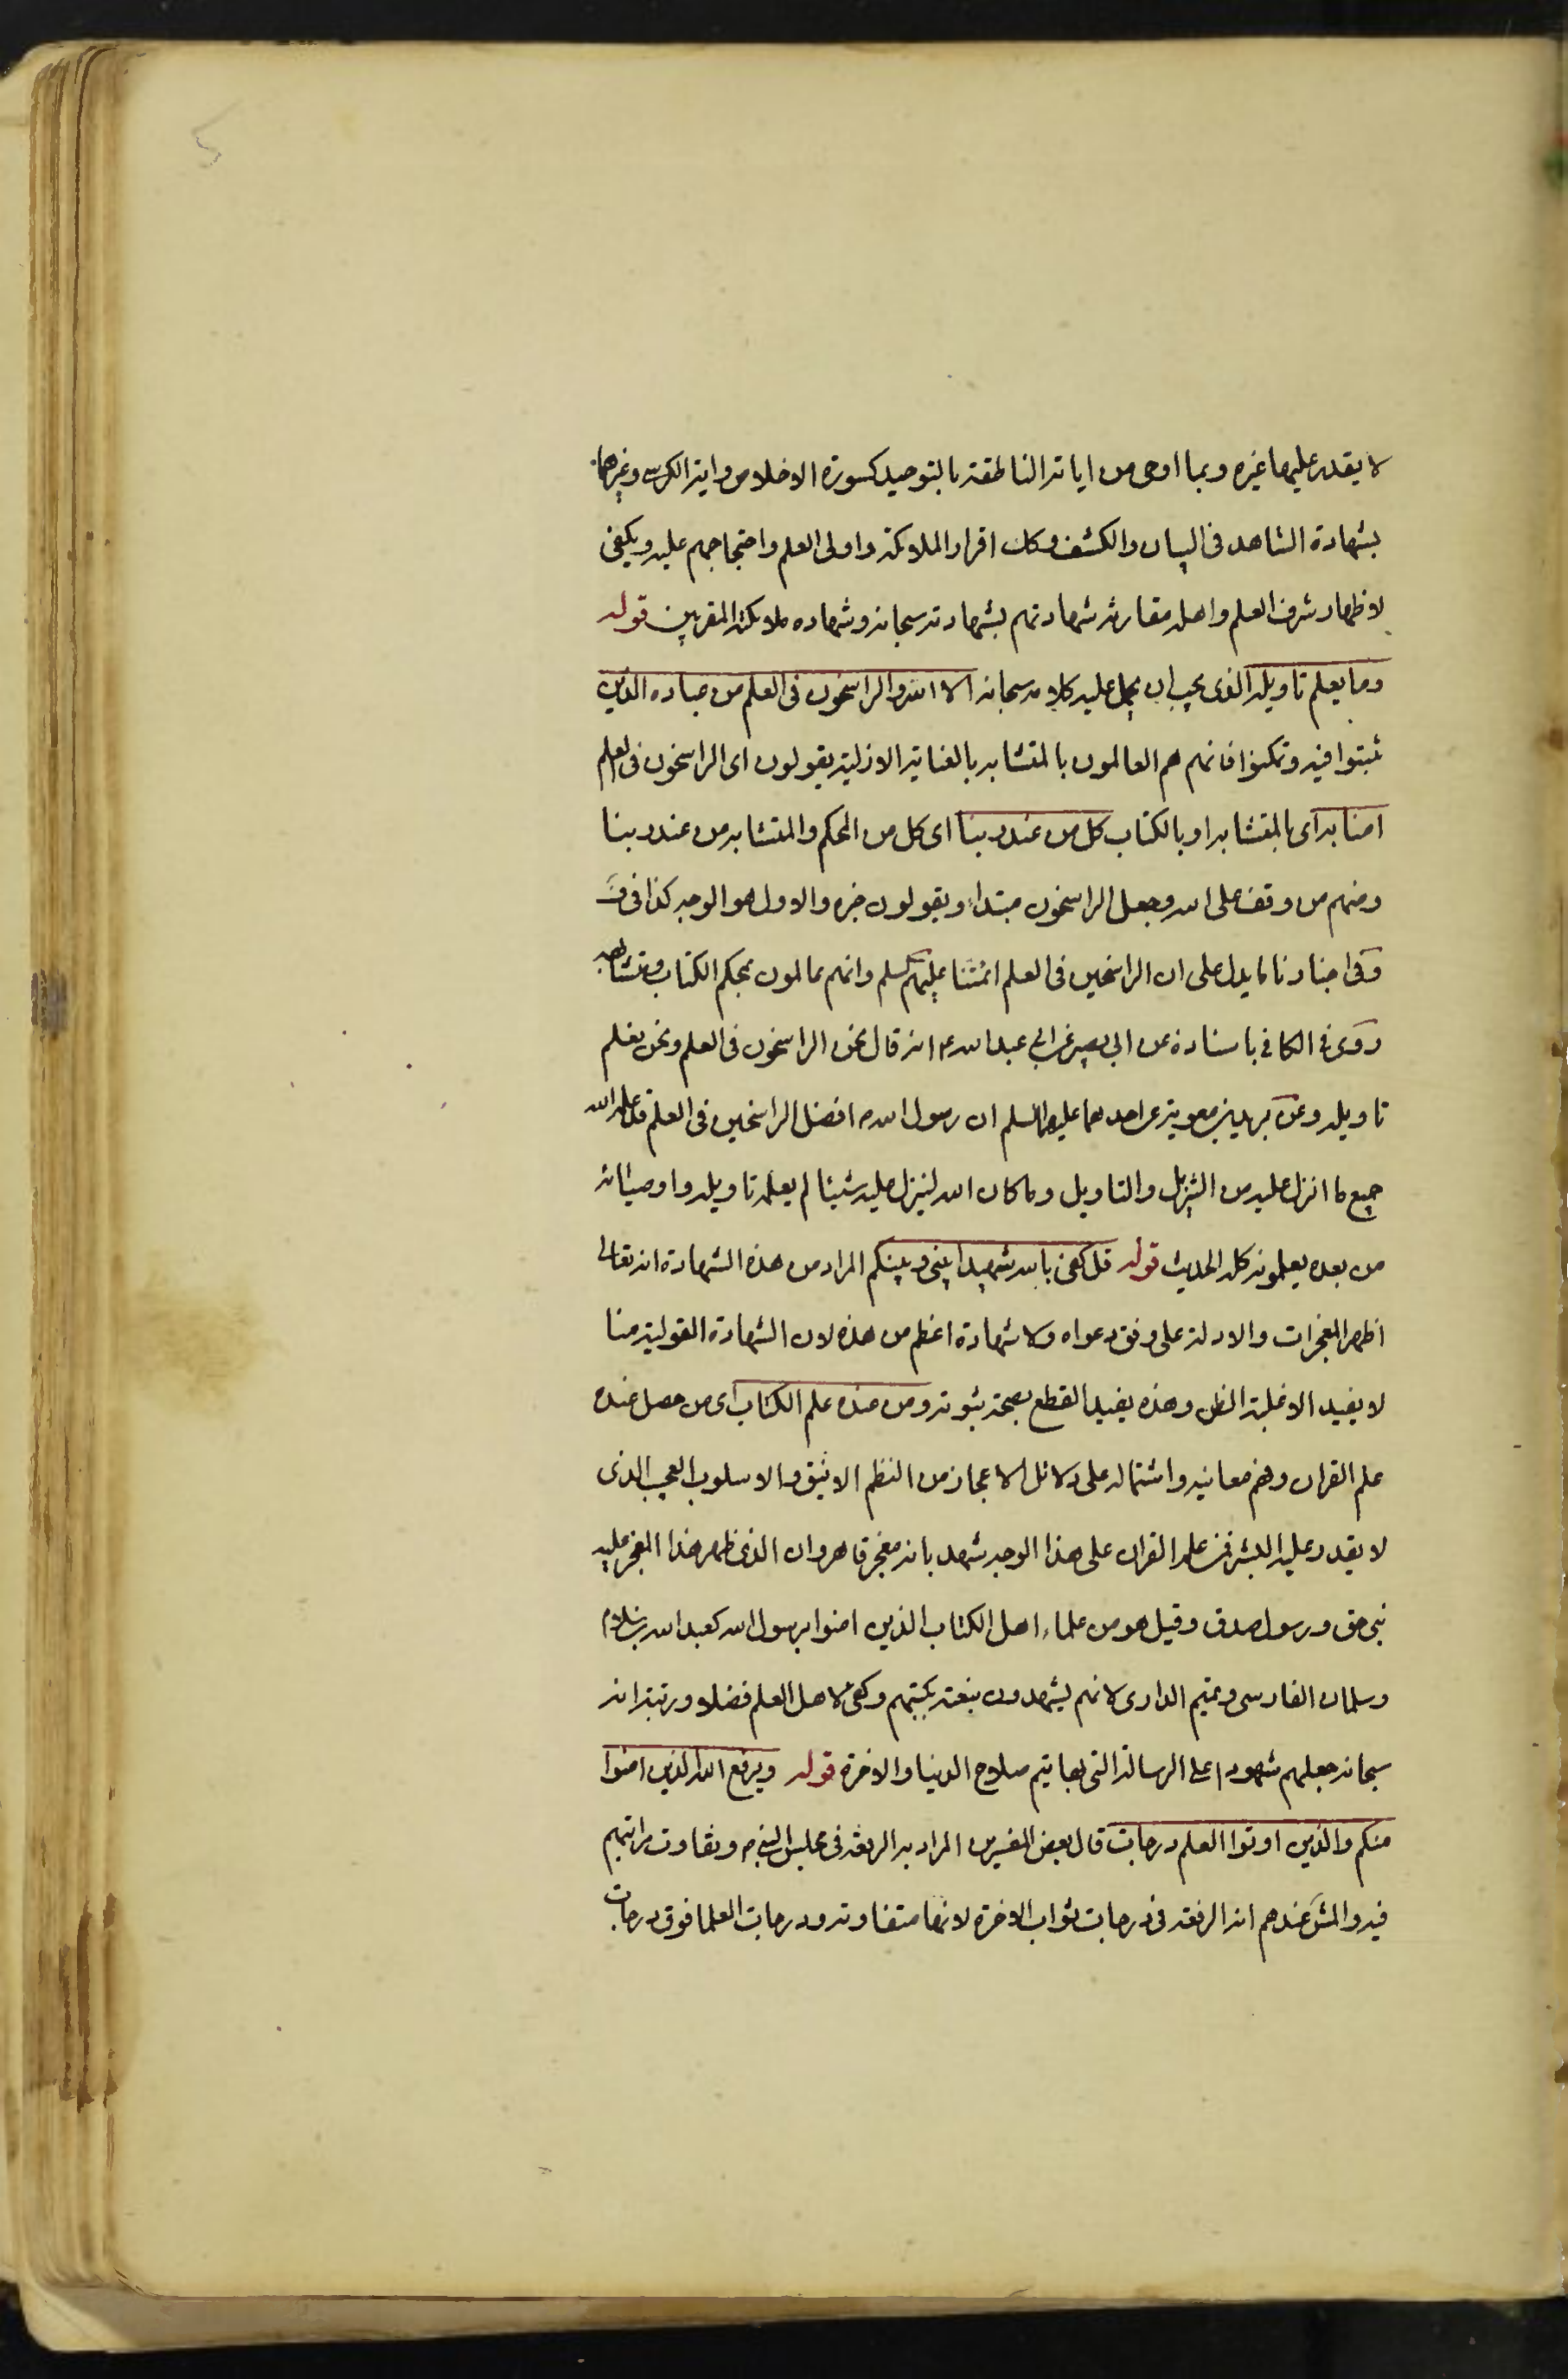 لا يقدر عليها غيره وبما اوحى من اياته الناطقة بالتوحيد كسورة الاخلاص واية الكرسى وغيرهما
بشهادة الشاهد فى البيان والكشف وكك اقرار الملائكة واولى العلم واحتجاجهم عليه ويكفى
لاظهار شرف العلم واهله مقارنة شهادتهم بشهادته سبحانه وشهاده ملائكته المقربين قوله
وما يعلم تاويله الذى يجب ان يحمل عليه كلامه سبحانه الا الله والراسخون فى العلم من عباده الذين
ثبتوا فيه وتمكنوا فانهم هم العالمون بالمتشابه بالعناية الازلية يقولون اى الراسخون فى العلم
امنا به اى بالمتشابه او بالكتاب كل من عند ربنا اى كل من المحكم والمتشابه من عند ربنا
ومنهم من وقف على الله وجعل الراسخون مبتداء ويقولون خبره والاول هو الوجه كذا فى ف
وفى اخبارنا ما يدل على ان الراسخين فى العلم ائمتنا عليهم السلم وانهم عالمون بمحكم الكتاب ومتشابهه
روى فى الكافى باسناده عن ابى بصير عن ابى عبد الله ع انه قال نحن الراسخون فى العلم ونحن نعلم
تاويله وعن بريد بن معوية عن احدهما عليهما السلم ان رسول الله ص افضل الراسخين فى العلم قد علمه الله
جميع ما انزل عليه من التنزيل والتاويل وما كان الله لينزل عليه شيئا لم يعلمه تاويله واوصيائه
من بعده يعلمونه كله الحديث قوله قل كفى بالله شهيدا بينى وبينكم المراد من هذه الشهادة انه تعالى
اظهر المعجزات والادلة على وفق دعواه ولا شهادة اعظم من هذه لان الشهادة القولية منا
لا يفيد الا غلبة الظن وهذه يفيد القطع بصحة ثبوته ومن عنده علم الكتاب اى من حصل عنده
علم القران وفهم معانيه واشتماله على دلائل الاعجاز من النظم الانيق والاسلوب العجيب الذى
لا يقدر عليه البشر فمن علم القران على هذا الوجه شهد بانه معجز قاهر وان الذى ظهر هذا المعجز عليه
نبى حق ورسول صدق وقيل هو من علماء اهل الكتاب الذين امنوا برسول الله كعبد الله بن سلام
وسلمان الفارسى وتميم الدارى لانهم يشهدون بنعته بكتبهم وكفى لاهل العلم فضلا ورتبة انه
سبحانه جعلهم شهودا على الرسالة التى بها يتم صلاح الدنيا والاخرة قوله ويرفع الله الذين امنوا
منكم والذين اوتوا العلم درجات قال بعض المفسرين المراد به الرفعة فى مجلس النبى ص وتفاوت مراتبهم
فيه والمش عندهم انه الرفعة فى درجات ثواب الاخرة لانها متفاوته ودرجات العلما فوق درجات